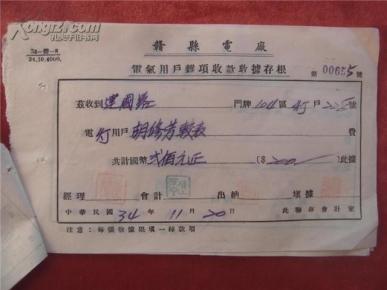 贛縣電廠
34.10.4000.
電氣用戶雜項收款收據存根
第 00655 號
茲收到 建國路 門牌 104 區 灯 戶
電灯用戶 胡 芳 較表 費
共計國幣 弍佰元正 ($ 200 ) 此據
經理 會計 出納 填據
中華民國 34 年 11 月 20 日 此聯存會計室
注意：每張收據限填一種款項